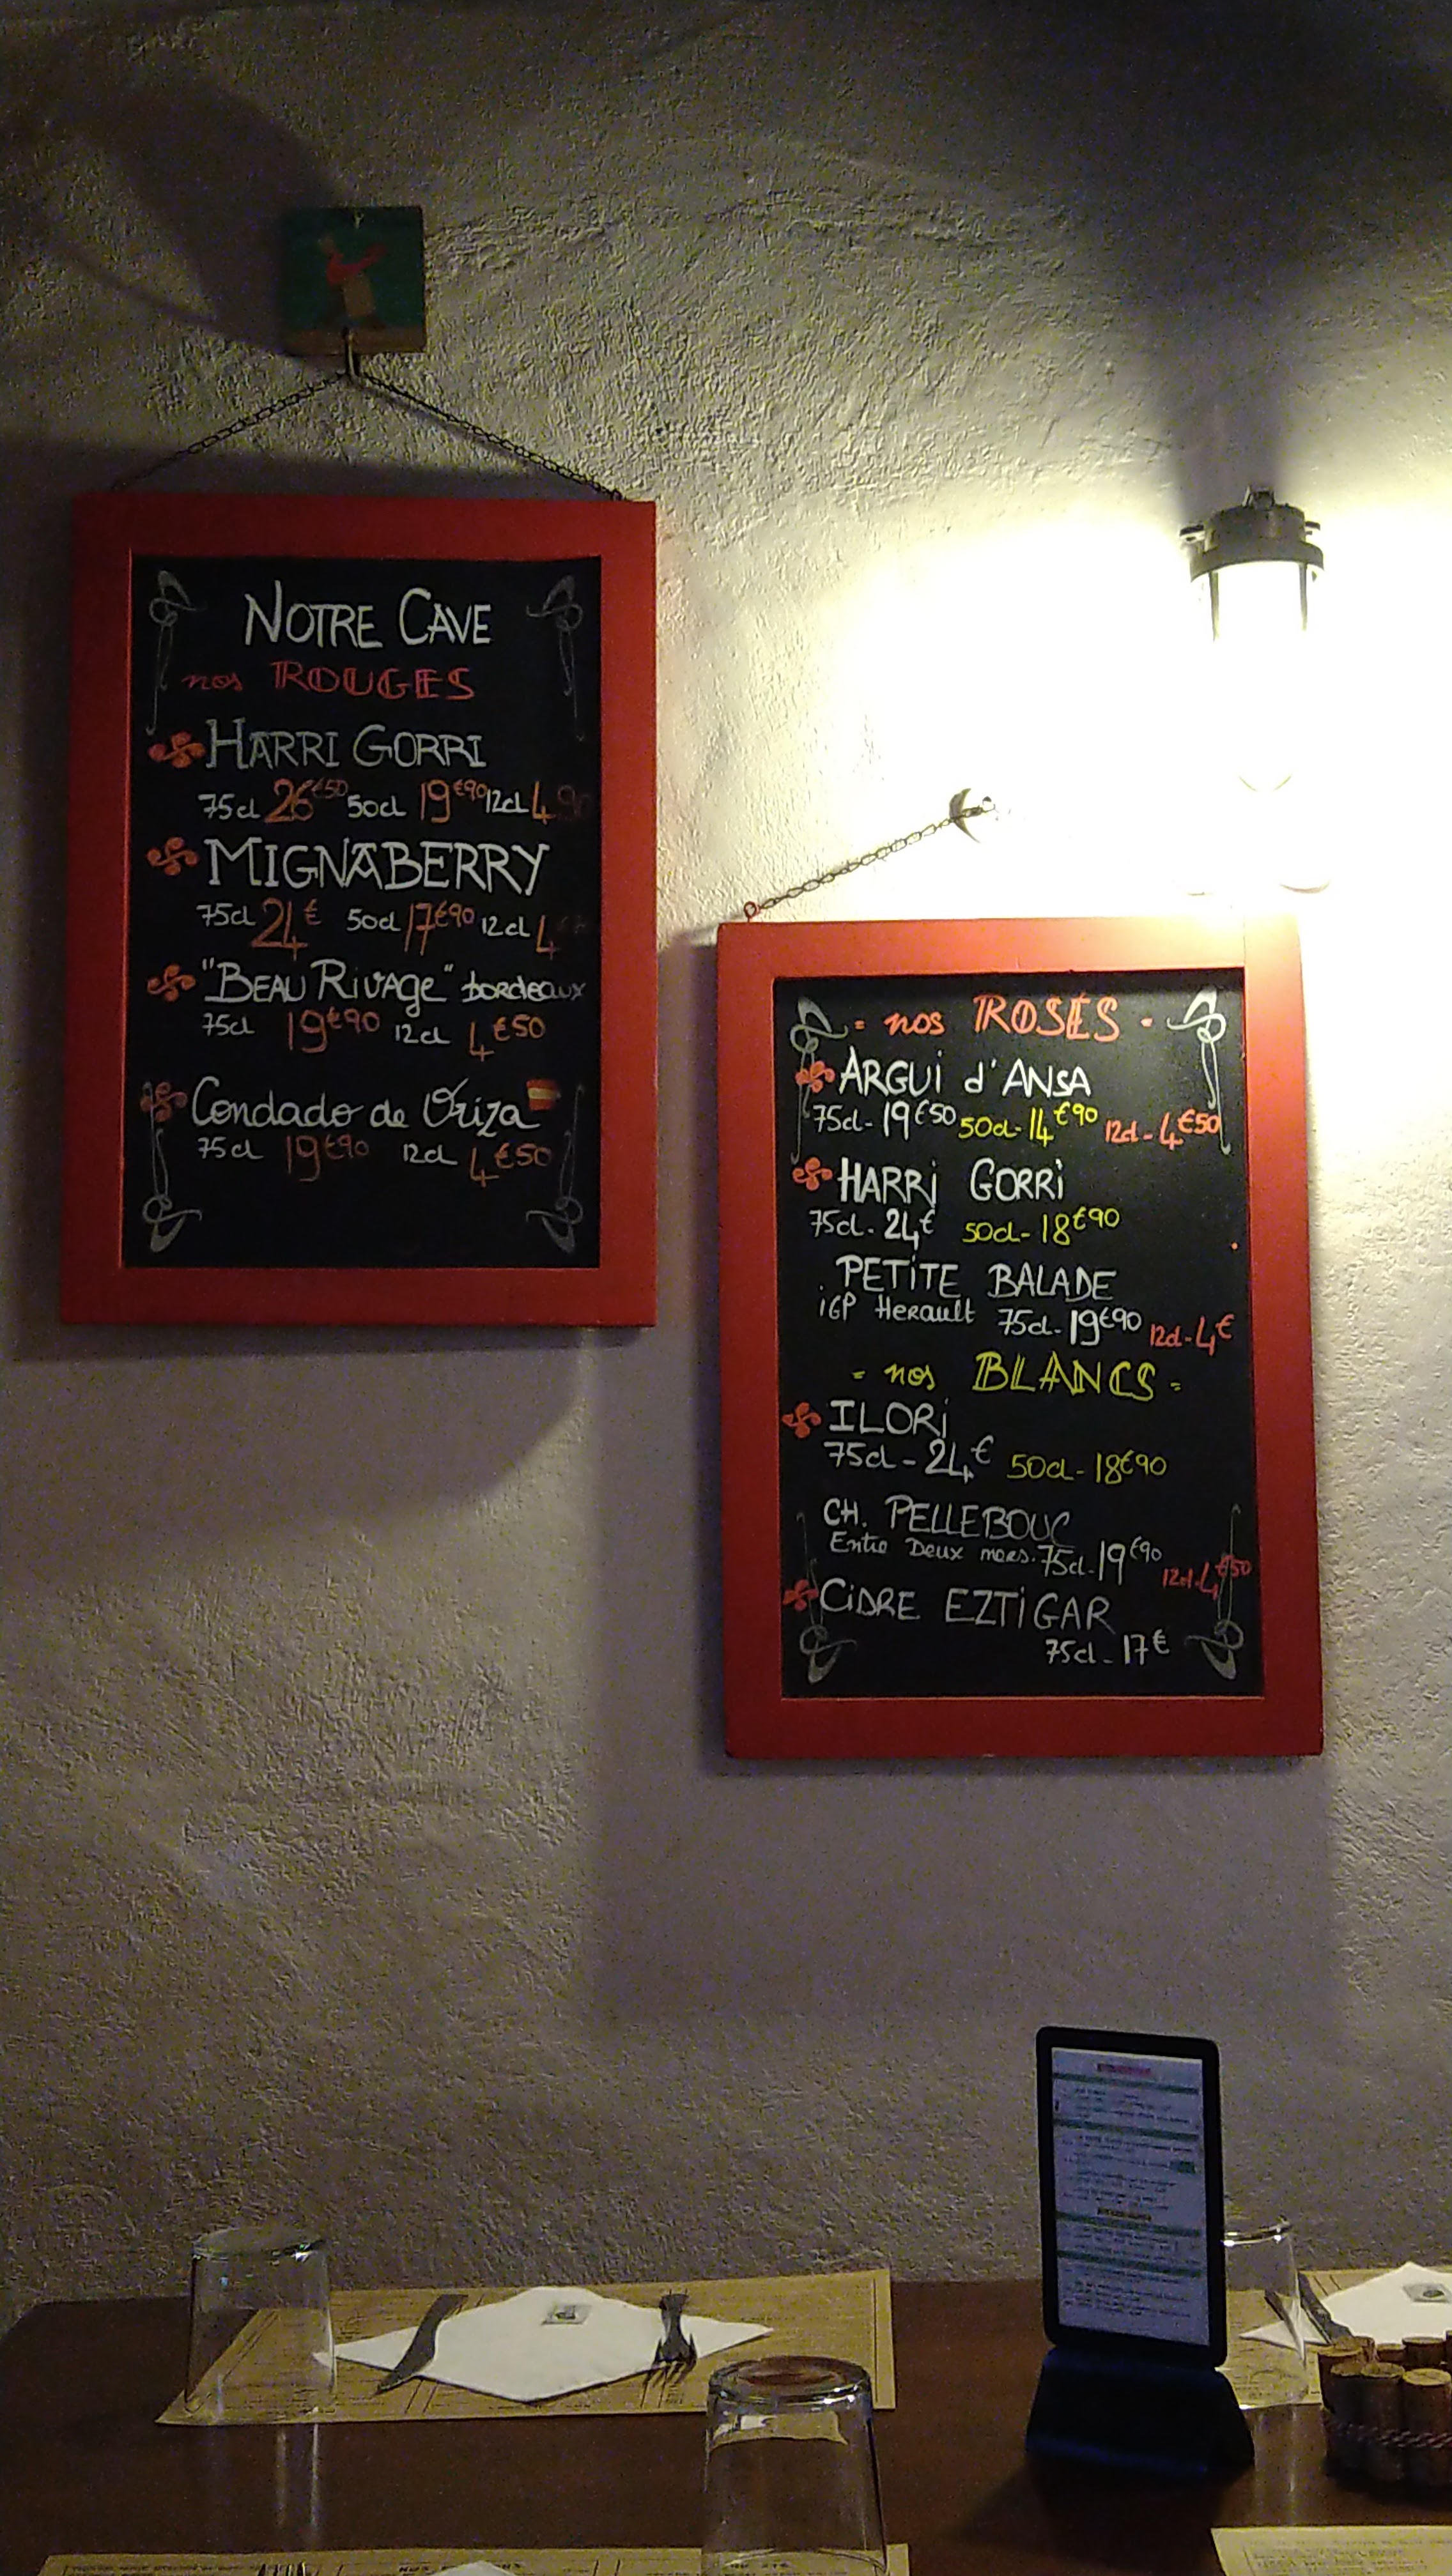 NOTRE CAVE
nos ROUGES
HARRI GORRI
75cl 26€50 50cl 19€90 12cl 4 90
MIGNABERRY
75cl 24€ 50cl 17€90 12cl 4
"BEAU RIVAGE" bordeaux
75cl 19€90 12cl 4€50
Condado de Oriza
75cl 19€90 12cl 4€50
= nos ROSÉS -
ARGUI d'ANSA
75cl - 19€50 50cl - 14€90 12cl - 4€50
HARRi GORRi
75cl - 24€ 50cl - 18€90
PETiTE BALADE
iGP Herault 75cl - 19€90 12cl - 4€
= nos BLANCS =
ILORi
75cl - 24€ 50cl - 18€90
CH. PELLEBOUC
Entre Deux mers. 75cl - 19€90 12cl - 4€50
CiDRE EZTiGAR
75cl - 17€